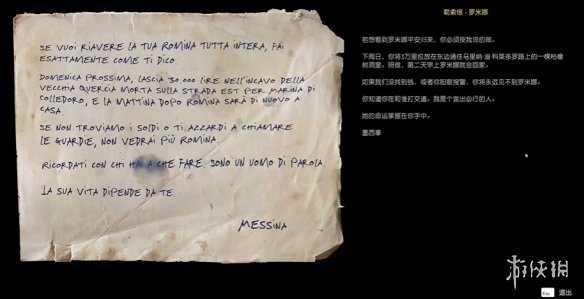 SE VUOI RIAVERE LA TUA ROMINA TUTTA INTERA, FAI
ESATTAMENTE COME TI DICO.
DOMENICA PROSSIMA, LASCIA 30 000 LIRE NELL'INCAVO DELLA
VECCHIA QUERCIA MORTA SULLA STRADA EST PER MARINA DI
COLLEDORO, E LA MATTINA DOPO ROMINA SARÀ DI NUOVO A
CASA.
SE NON TROVIAMO I SOLDI O TI AZZARDI A CHIAMARE
LE GUARDIE, NON VEDRAI PIÙ ROMINA.
RICORDATI CON CHI HAI A CHE FARE. SONO UN UOMO DI PAROLA.
LA SUA VITA DIPENDE DA TE.
MESSINA
勒索信 - 罗米娜
若想看到罗米娜平安归来，你必须按我说的做。
下周日，你将3万里拉放在东边通往马里纳·迪·科莱多罗路上的一棵枯橡
树洞里。照做，第二天早上罗米娜就会回家。
如果我们没找到钱，或者你胆敢报警，你将永远见不到罗米娜。
你知道你在和谁打交道。我是个言出必行的人。
她的命运掌握在你手中。
墨西拿
游侠网
Esc 退出